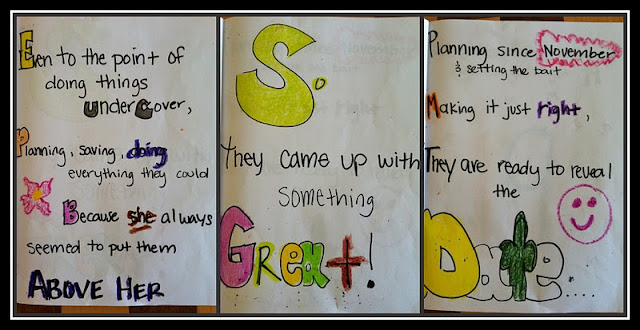 Even to the point of
doing things
undercover,
Planning, saving, doing
everything they could
Because she always
seemed to put them
ABOVE HER
So
They came up with
something
Great!
Planning since November
& setting the bait
Making it just right,
They are ready to reveal
the
Date....